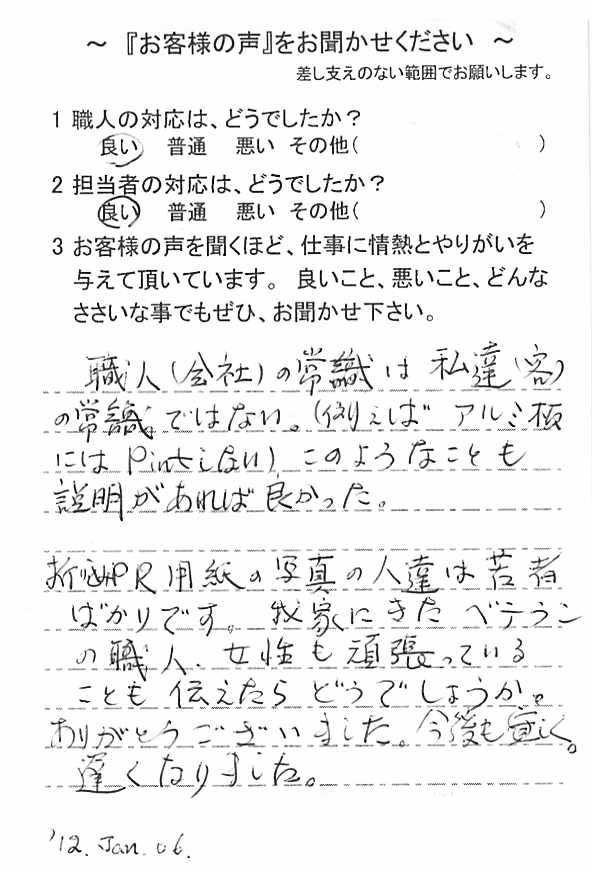 ～ 『お客様の声』をお聞かせください ～
差し支えのない範囲でお願いします。
1 職人の対応は、どうでしたか？
良い 普通 悪い その他( )
2 担当者の対応は、どうでしたか？
良い 普通 悪い その他( )
3 お客様の声を聞くほど、仕事に情熱とやりがいを
与えて頂いています。 良いこと、悪いこと、どんな
ささいな事でもぜひ、お聞かせ下さい。
職人(会社)の常識は私達(客)
の常識ではない。(例えば アルミ板
には Pintしない) このようなことも
説明があれば良かった。
折込PR用紙の写真の人達は若者
ばかりです。我家にきたベテラン
の職人、女性も頑張っている
ことも伝えたらどうでしょうか。
ありがとうございました。今後も宜しく。
遅くなりました。
'12. Jan. 06.